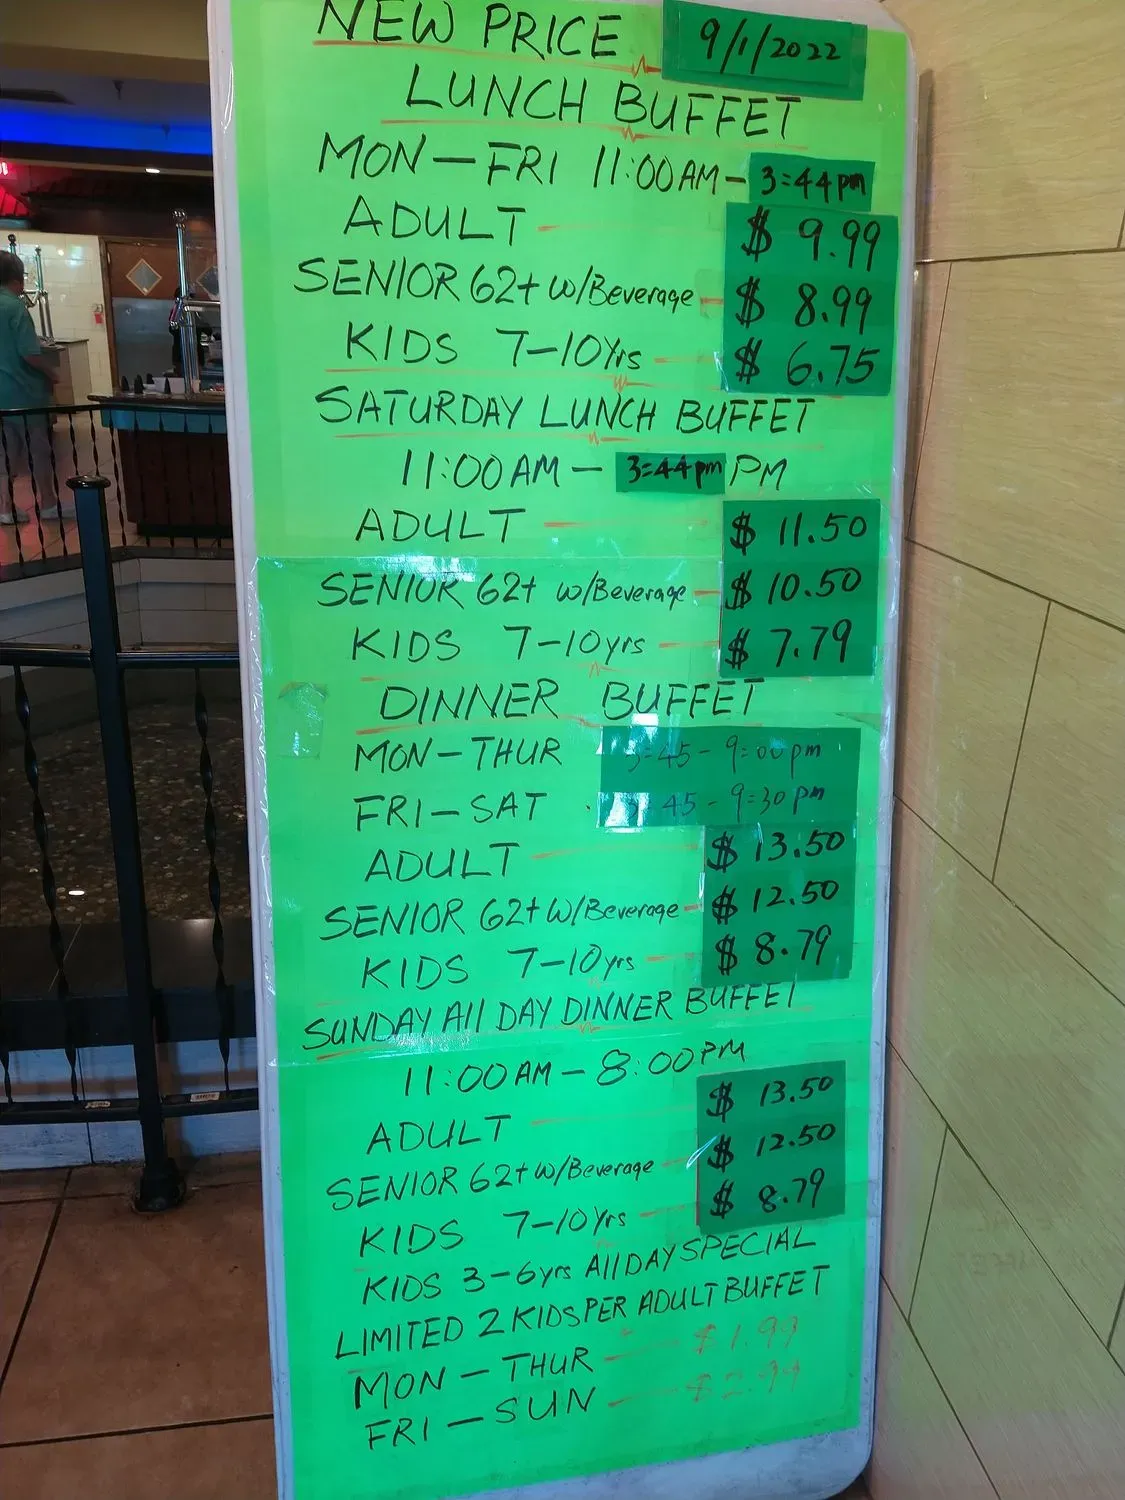 NEW PRICE 9/1/2022
LUNCH BUFFET
MON-FRI 11:00AM-3:44pm
ADULT $ 9.99
SENIOR 62+ w/Beverage $ 8.99
KIDS 7-10Yrs $ 6.75
SATURDAY LUNCH BUFFET
11:00AM- 3:44pm PM
ADULT $ 11.50
SENIOR 62+ w/Beverage $ 10.50
KIDS 7-10yrs $ 7.79
DINNER BUFFET
MON-THUR 3:45 - 9:00pm
FRI-SAT 3:45 - 9:30pm
ADULT $ 13.50
SENIOR 62+ w/Beverage $ 12.50
KIDS 7-10yrs $ 8.79
SUNDAY All DAY DINNER BUFFET
11:00AM-8:00PM
ADULT $ 13.50
SENIOR 62+ w/Beverage $ 12.50
KIDS 7-10Yrs $ 8.79
KIDS 3-6yrs All DAY SPECIAL
LIMITED 2 KIDS PER ADULT BUFFET
MON-THUR $1.99
FRI-SUN $2.99